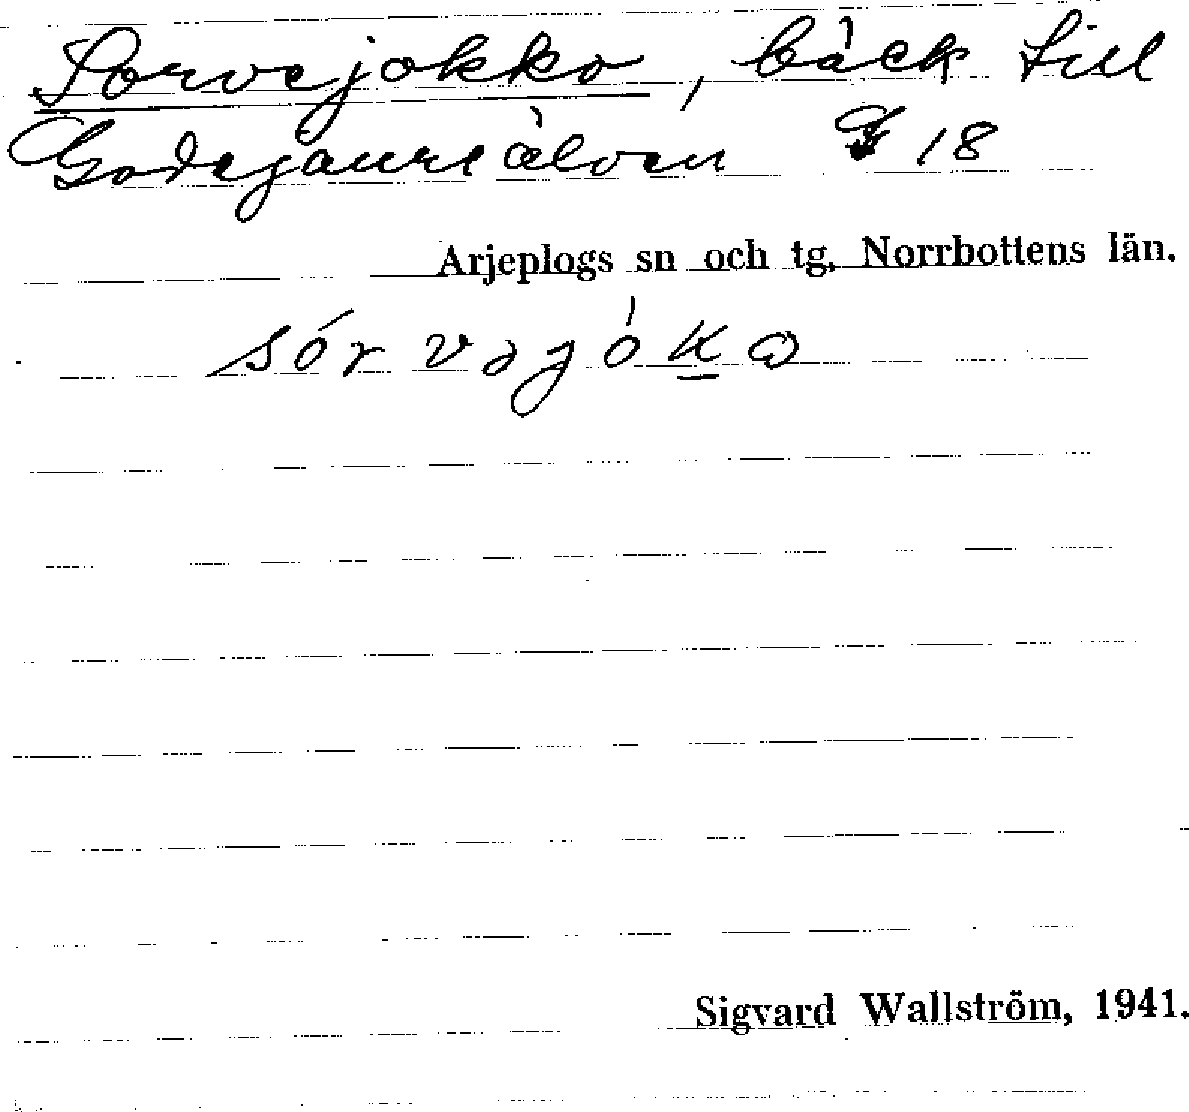 Sorvejokko, bäck till
Godejaureälven 18
Arjeplogs sn och tg. Norrbottens län.
sórvəjókɑ
Sigvard Wallström, 1941.